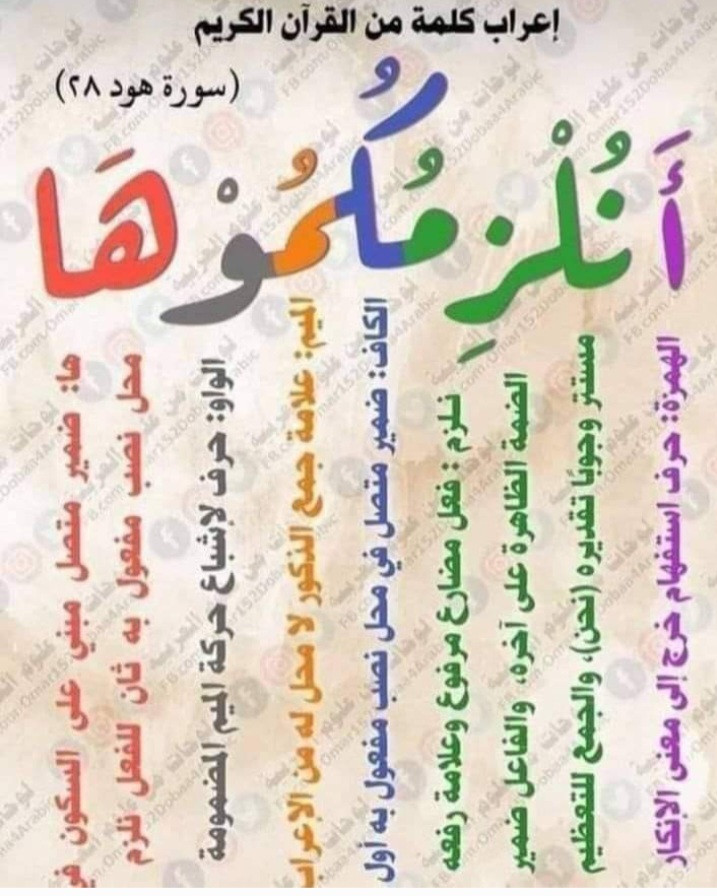 إعراب كلمة من القرآن الكريم
(سورة هود ٢٨)
أَنُلْزِمُكُمُوْهَا
الهمزة: حرف استفهام خرج إلى معنى الإنكار
نلزم: فعل مضارع مرفوع وعلامة رفعه
الضمة الظاهرة على آخره، والفاعل ضمير
مستتر وجوبًا تقديره (نحن)، والجمع للتعظيم
الكاف: ضمير متصل في محل نصب مفعول به أول
الميم: علامة جمع الذكور لا محل له من الإعراب
الواو: حرف لإشباع حركة الميم المضمومة
ها: ضمير متصل مبني على السكون في
محل نصب مفعول به ثان للفعل نلزم
لوحات من علوم العربية
FB.com/Omar152Dobaa4Arabic